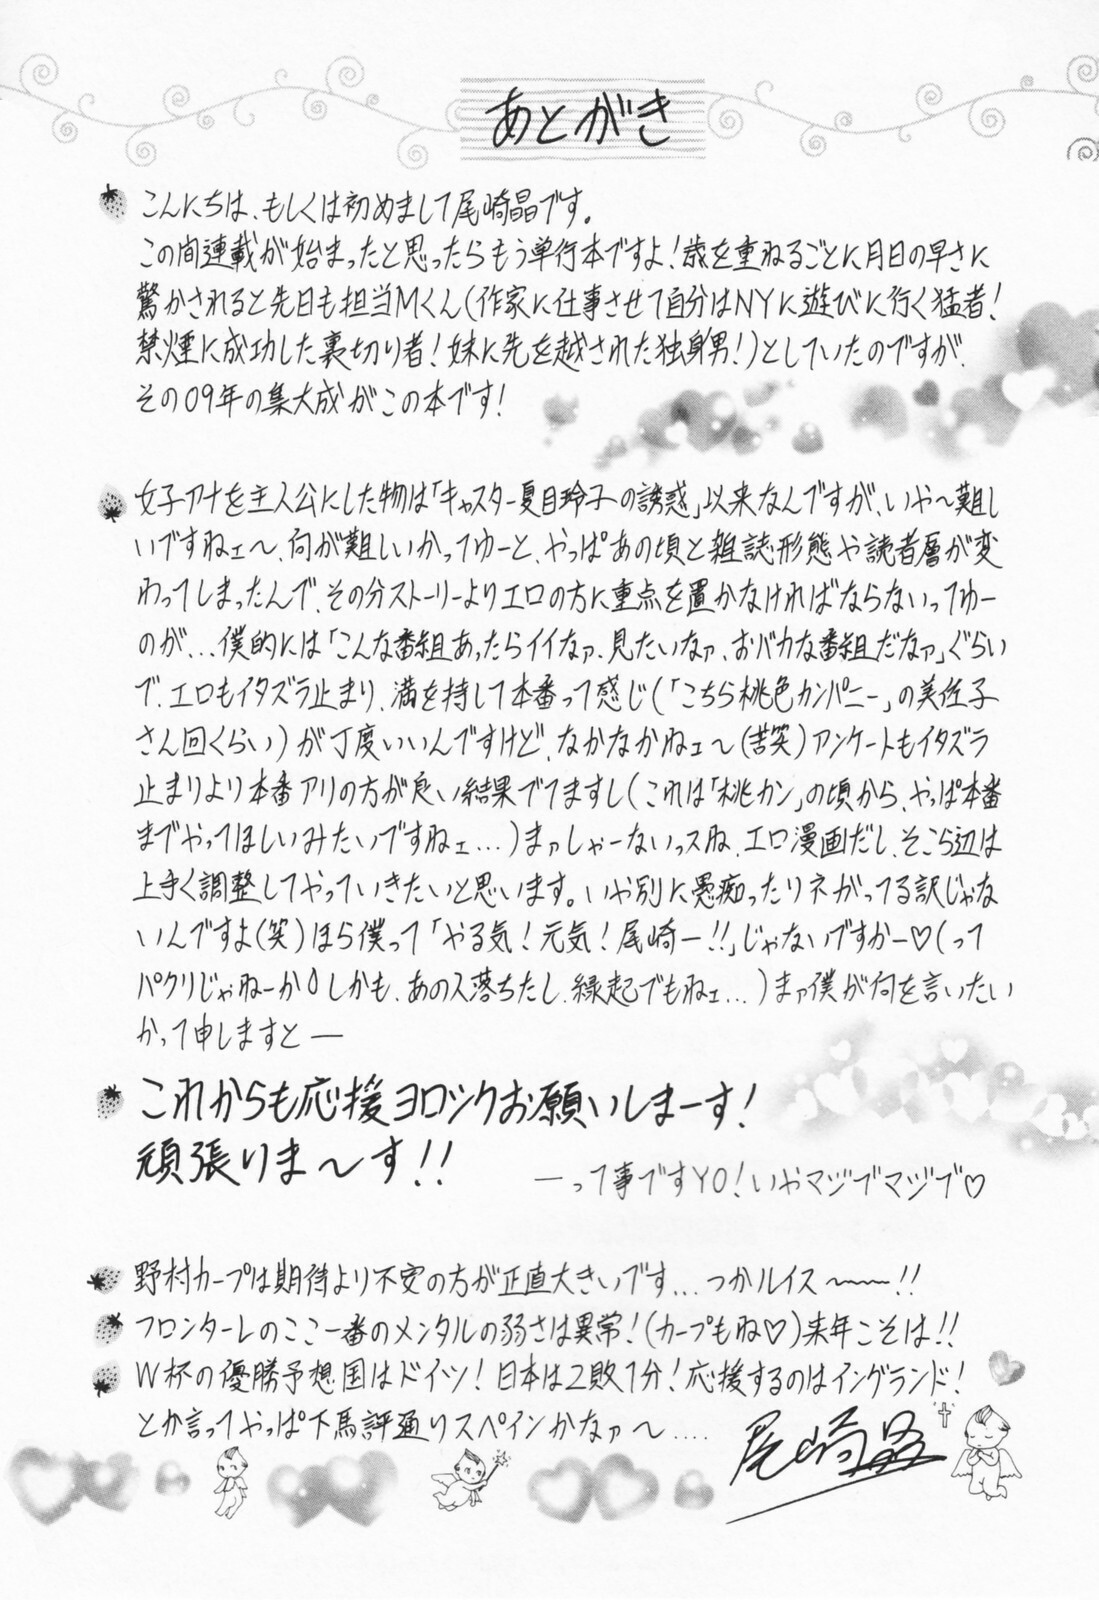 あとがき
こんにちは、もしくは初めまして尾崎晶です。
この間連載が始まったと思ったらもう単行本ですよ！歳を重ねるごとに月日の早さに
驚かされると先日も担当Mくん(作家に仕事させて自分はNYに遊びに行く猛者！
禁煙に成功した裏切り者！妹に先を越された独身男！)としていたのですが、
その09年の集大成がこの本です！
女子アナを主人公にした物は「キャスター夏目玲子の誘惑」以来なんですが、いや〜難し
いですねェ〜、何が難しいかってゆーと、やっぱあの頃と雑誌形態や読者層が変
わってしまったんで、その分ストーリーよりエロの方に重点を置かなければならないってゆー
のが...僕的には「こんな番組あったらイイなァ、見たいなァ、おバカな番組だなァ」ぐらい
で、エロもイタズラ止まり、満を持して本番って感じ(「こちら桃色カンパニー」の美佐子
さん回くらい)が丁度いいんですけど、なかなかねェ〜(苦笑)アンケートもイタズラ
止まりより本番アリの方が良い結果でてますし(これは「桃カン」の頃から、やっぱ本番
までやってほしいみたいですねェ...)まァしゃーないっスね、エロ漫画だし、そこら辺は
上手く調整してやっていきたいと思います。いや別に愚痴ったりネガってる訳じゃな
いんですよ(笑)ほら僕って「やる気！元気！尾崎ー！！」じゃないですかー♡(って
パクリじゃねーか しかも、あの人落ちたし、縁起でもねェ...)まァ僕が何を言いたい
かって申しますと―
これからも応援ヨロシクお願いしまーす！
頑張りま〜す！！
―って事ですYO！いやマジでマジで♡
野村カープは期待より不安の方が正直大きいです...つかルイス〜〜！！
フロンターレのここ一番のメンタルの弱さは異常！(カープもね♡)来年こそは！！
W杯の優勝予想国はドイツ！日本は2敗1分！応援するのはイングランド！
とか言ってやっぱ下馬評通りスペインかなァ〜....
尾崎晶